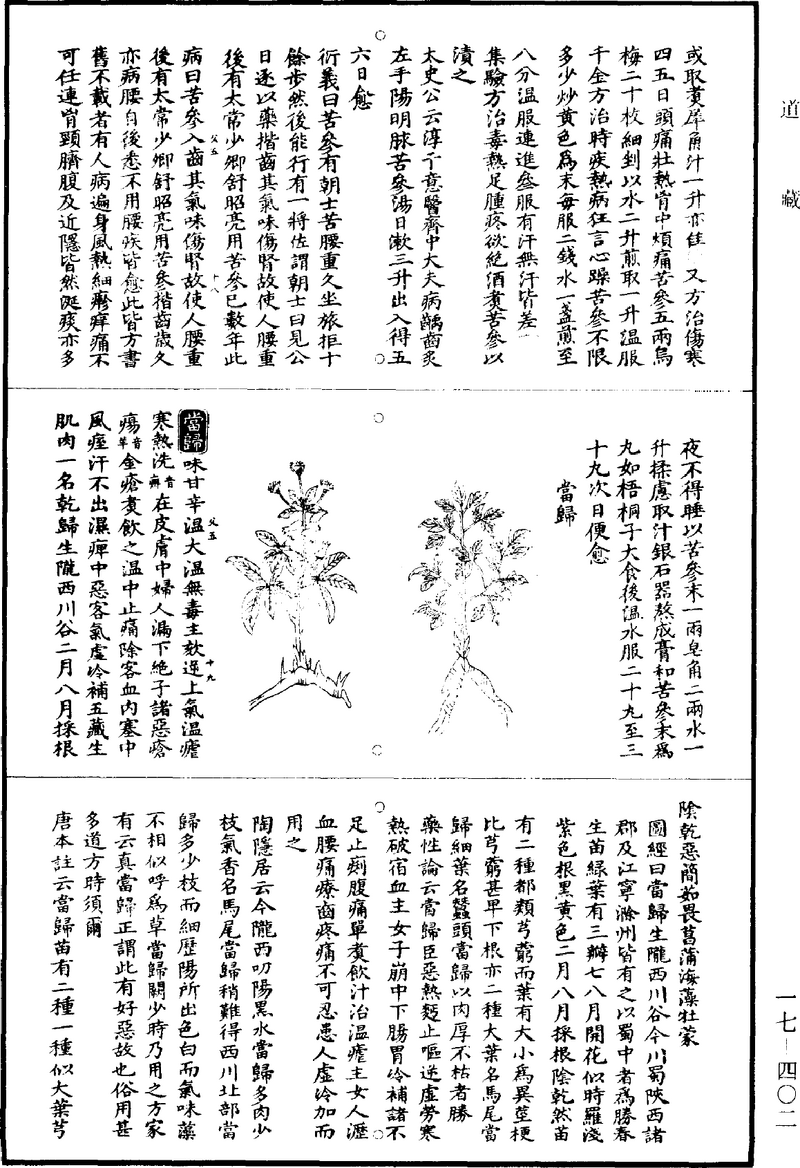 道藏
或取煑犀角汁一升亦佳 又方治傷寒
四五日頭痛壯熱胷中煩痛苦參五兩烏
梅二十枚細剉以水二升煎取一升溫服
千金方治時疾熱病狂言心躁苦參不限
多少炒黃色爲末每服二錢水一盞煎至
八分溫服連進叄服有汗無汗皆差
集驗方治毒熱足腫疼欲絶酒煑苦參以
漬之
太史公云淳于意醫齊中大夫病齲齒灸
左手陽明脉苦參湯日漱三升出入得五
六日愈
衍義曰苦參有朝士苦腰重久坐旅拒十
餘步然後能行有一將佐謂朝士曰見公
日逐以藥揩齒其氣味傷腎故使人腰重
後有太常少卿舒昭亮用苦參已數年此
病曰苦參入齒其氣味傷腎故使人腰重
後有太常少卿舒昭亮用苦參揩齒歲久
亦病腰自後悉不用腰疾皆愈此皆方書
舊不載者有人病遍身風熱細疹痒痛不
可任連胷頸臍腹及近隱皆然涎痰亦多
父五
十八
夜不得睡以苦參末一兩皂角二兩水一
升揉慮取汁銀石器熬成膏和苦參末爲
丸如梧桐子大食後溫水服二十丸至三
十丸次日便愈
當歸
當歸 味甘辛溫大溫無毒主欬逆上氣溫瘧
寒熱洗音癬在皮膚中婦人漏下絶子諸惡瘡
瘍音羊金瘡煑飲之溫中止痛除客血內塞中
風痓汗不出濕痹中惡客氣虛冷補五藏生
肌肉一名乾歸生隴西川谷二月八月採根
父五
十九
陰乾惡䕡茹畏菖蒲海藻牡蒙
圖經曰當歸生隴西川谷今川蜀陝西諸
郡及江寧滁州皆有之以蜀中者爲勝春
生苗綠葉有三瓣七八月開花似時羅淺
紫色根黑黃色二月八月採根陰乾然苗
有二種都類芎藭而葉有大小爲異莖梗
比芎藭甚卑下根亦二種大葉名馬尾當
歸細葉名蠶頭當歸以肉厚不枯者勝
藥性論云當歸臣惡熱麪止嘔逆虛勞寒
熱破宿血主女子崩中下腸胃冷補諸不
足止痢腹痛單煑飲汁治溫瘧主女人瀝
血腰痛療齒疼痛不可忍患人虛冷加而
用之
陶隱居云今隴西叨陽黑水當歸多肉少
枝氣香名馬尾當歸稍難得西川北部當
歸多少枝而細歷陽所出色白而氣味薄
不相似呼爲草當歸闕少時乃用之方家
有云真當歸正謂此有好惡故也俗用甚
多道方時須爾
唐本註云當歸苗有二種一種似大葉芎
一七-四〇二